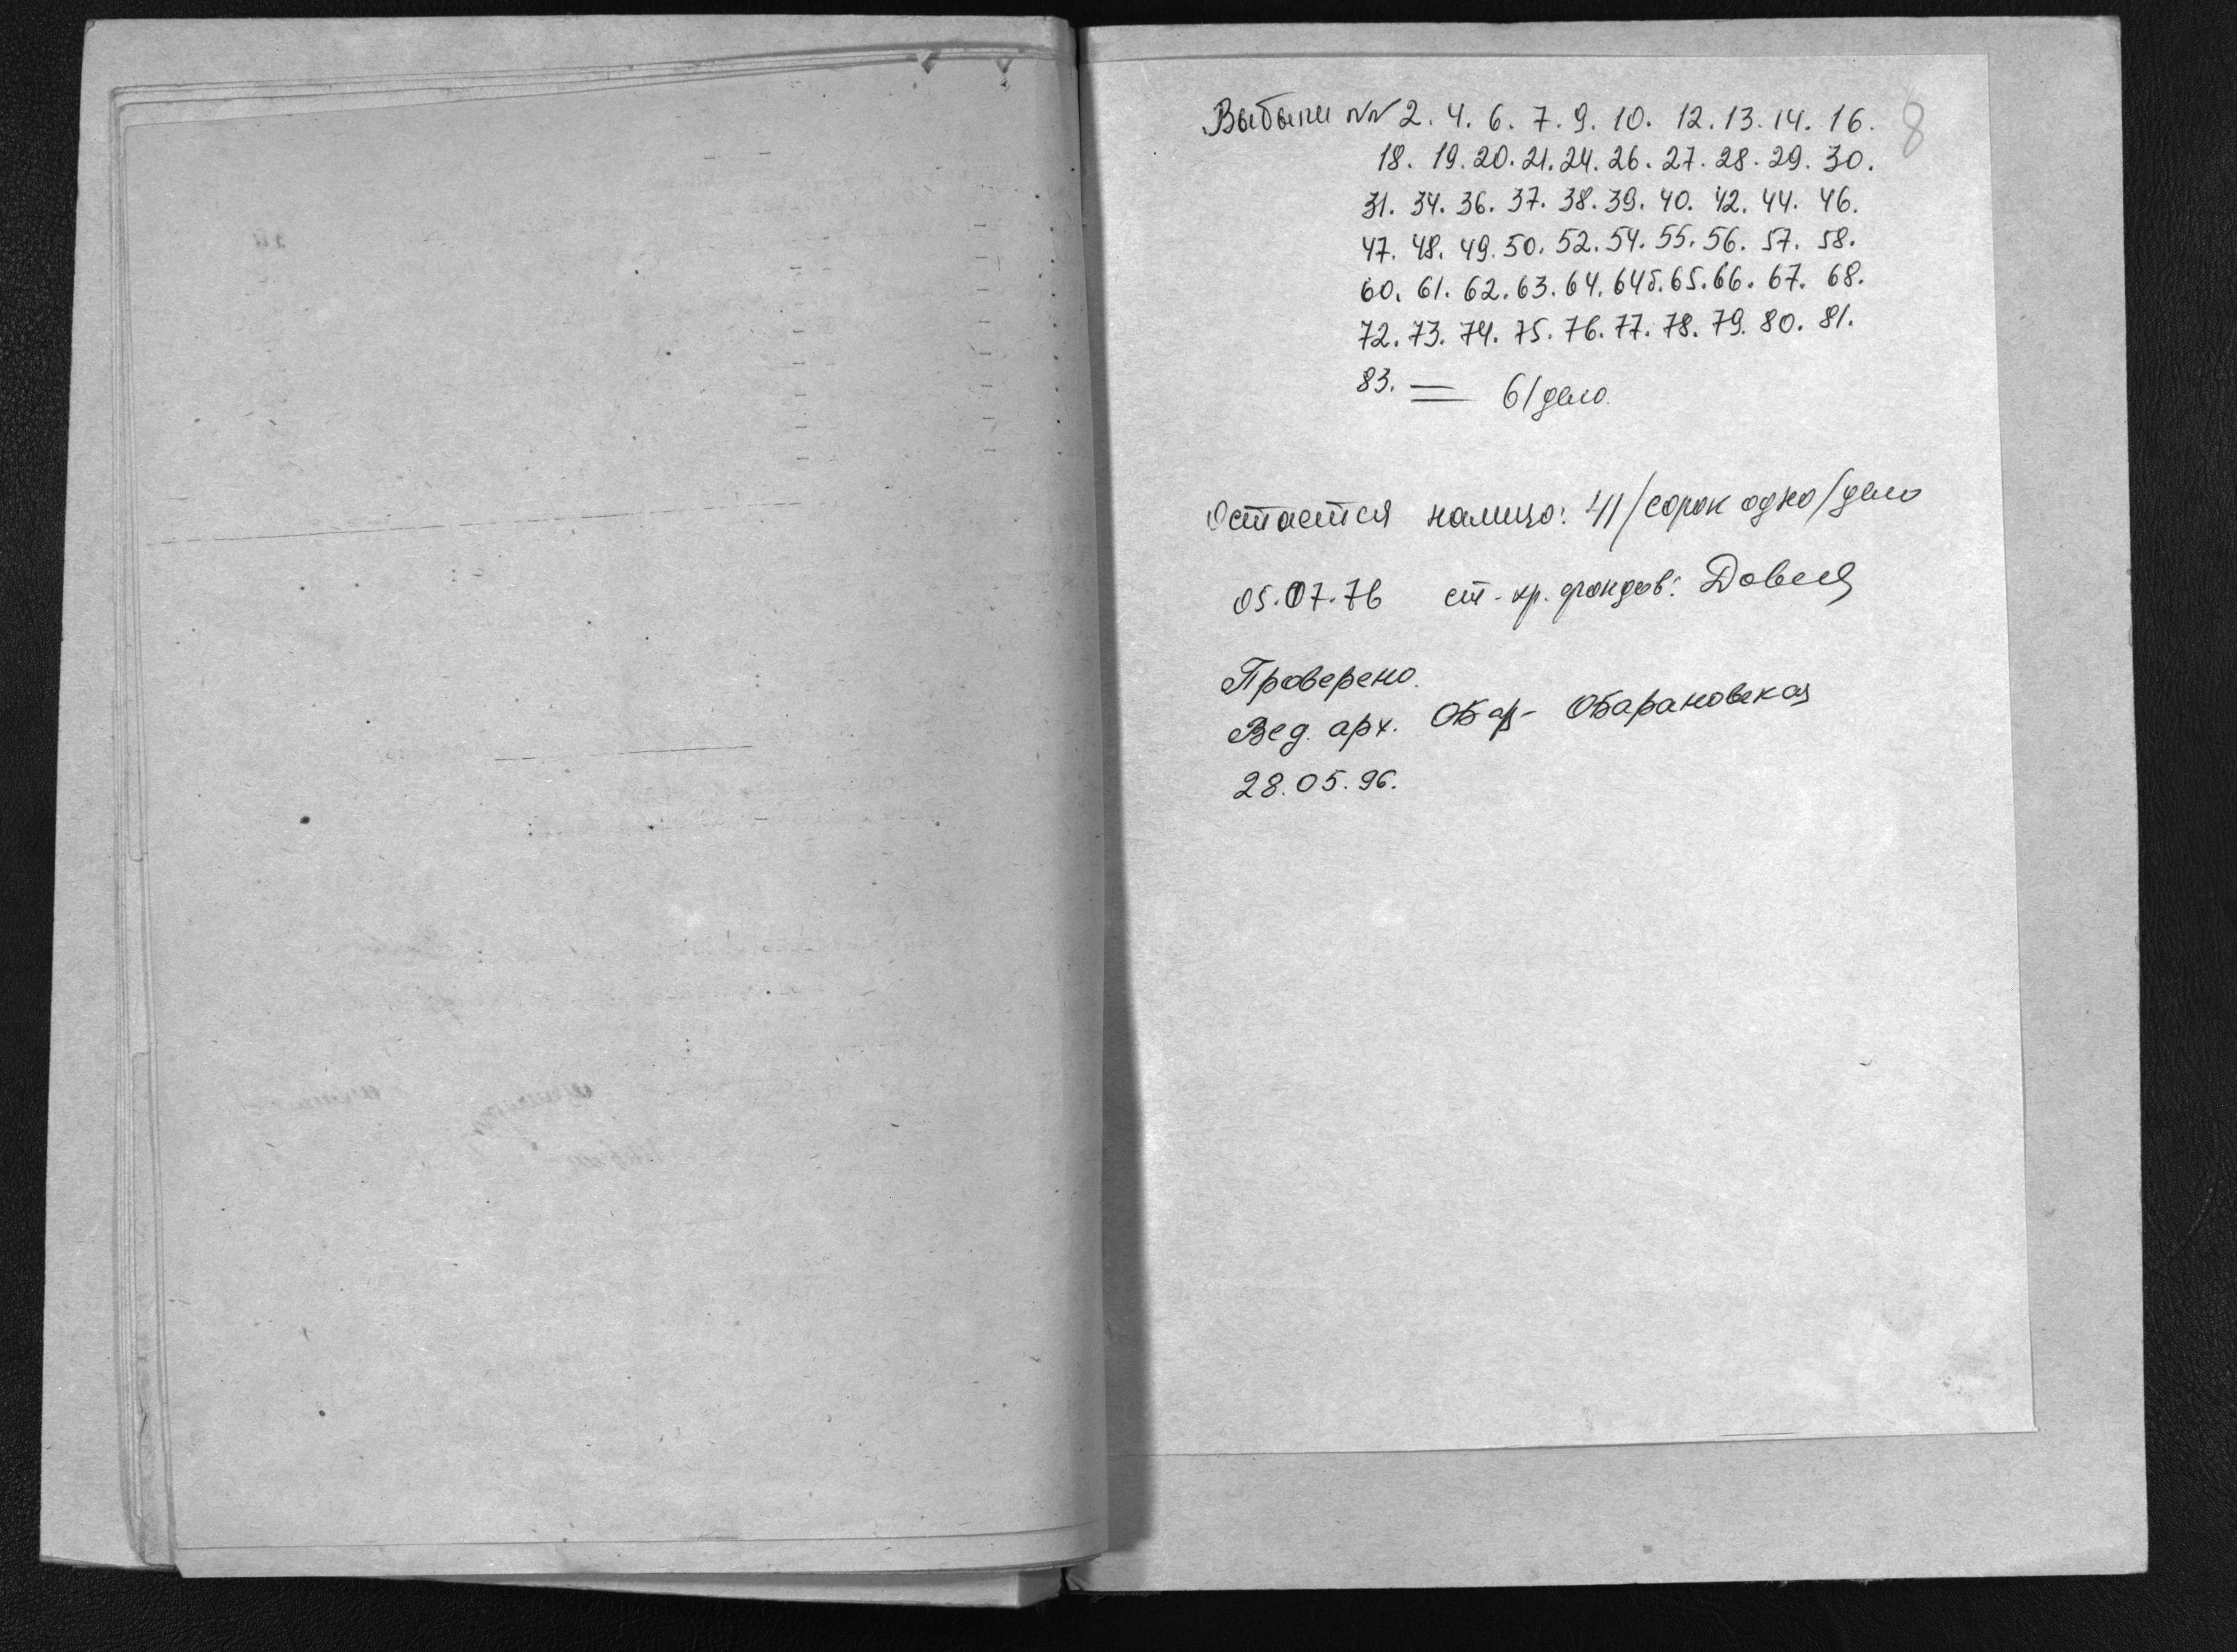 8
Выбыли NN 2. 4. 6. 7. 9. 10. 12. 13. 14. 16.
18. 19. 20. 21. 24. 26. 27. 28. 29. 30.
31. 34. 36. 37. 38. 39. 40. 42. 44. 46.
47. 48. 49. 50. 52. 54. 55. 56. 57. 58.
60. 61. 62. 63. 64. 64б. 65. 66. 67. 68.
72. 73. 74. 75. 76. 77. 78. 79. 80. 81.
83. = 61 дело
Остается налицо: 41 /сорок одно/ дело
05.07.76 ст. хр. фондов:
Проверено.
Вед. арх. ОБар- ОБарановская
28.05.96.